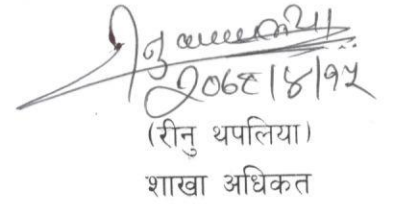 रीनु
२०६९।४।१५
(रीनु थपलिया)
शाखा अधिकत